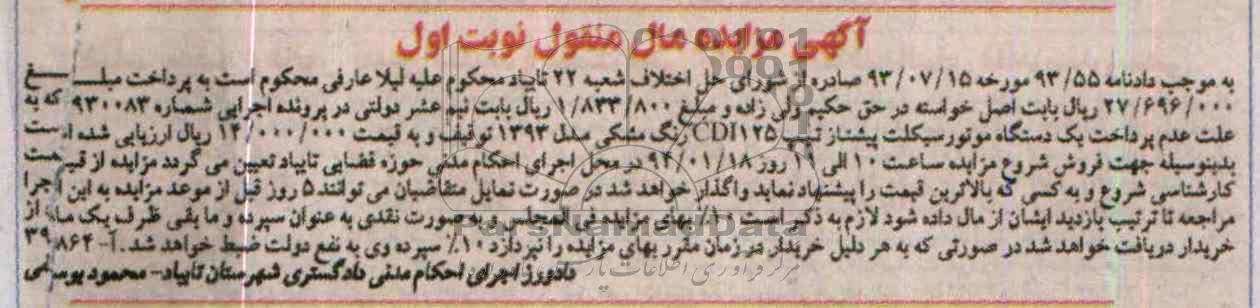 آگهی مزایده مال منقول نوبت اول
به موجب دادنامه ۹۳/۵۵ مورخه ۹۳/۰۷/۱۵ صادره از شورای حل اختلاف شعبه ۲۲ تایباد محکوم علیه لیلا عارفی محکوم است به پرداخت مبلغ
۲۷/۶۹۶/۰۰۰ ریال بابت اصل خواسته در حق حکیم ولی زاده و مبلغ ۱/۸۳۳/۸۰۰ ریال بابت نیم عشر دولتی در پرونده اجرایی شماره ۹۳۰۰۸۳ که به
علت عدم پرداخت یک دستگاه موتورسیکلت پیشتاز تیپ CDI۱۲۵ رنگ مشکی مدل ۱۳۹۳ توقیف و به قیمت ۱۴/۰۰۰/۰۰۰ ریال ارزیابی شده است
بدینوسیله جهت فروش شروع مزایده ساعت ۱۰ الی ۱۱ روز ۹۴/۰۱/۱۸ در محل اجرای احکام مدنی حوزه قضایی تایباد تعیین می گردد مزایده از قیمت
کارشناسی شروع و به کسی که بالاترین قیمت را پیشنهاد نماید واگذار خواهد شد در صورت تمایل متقاضیان می توانند ۵ روز قبل از موعد مزایده به این اجرا
مراجعه تا ترتیب بازدید ایشان از مال داده شود لازم به ذکر است ۱۰٪ بهای مزایده فی المجلس و به صورت نقدی به عنوان سپرده و ما بقی ظرف یک ماه از
خریدار دریافت خواهد شد در صورتی که به هر دلیل خریدار در زمان مقرر بهای مزایده را نپردازد ۱۰٪ سپرده وی به نفع دولت ضبط خواهد شد. آ-۳۹۸۶۴
دادورز اجرای احکام مدنی دادگستری شهرستان تایباد - محمود یوسفی
ParsNamadData
مرکز فرآوری اطلاعات پارس